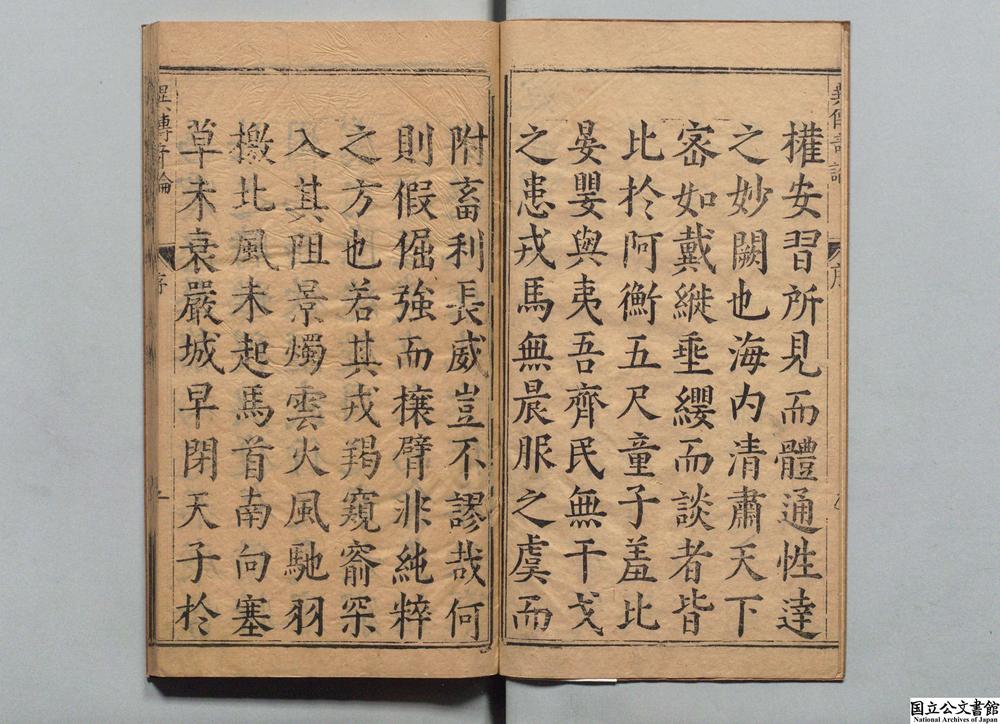 權安習所見而體通性達
之妙闕也海内清肅天下
密如戴縰垂纓而談者皆
比於阿衡五尺童子羞比
晏嬰與夷吾齊民無干戈
之患戎馬無晨服之虞而
附畜利長威豈不謬哉何
則假倔強而攘臂非純粹
之方也若其戎羯窺窬罙
入其阻景燭雲火風馳羽
檄北風未起馬首南向塞
草未衰嚴城早閉天子於
序
序
国立公文書館
National Archives of Japan